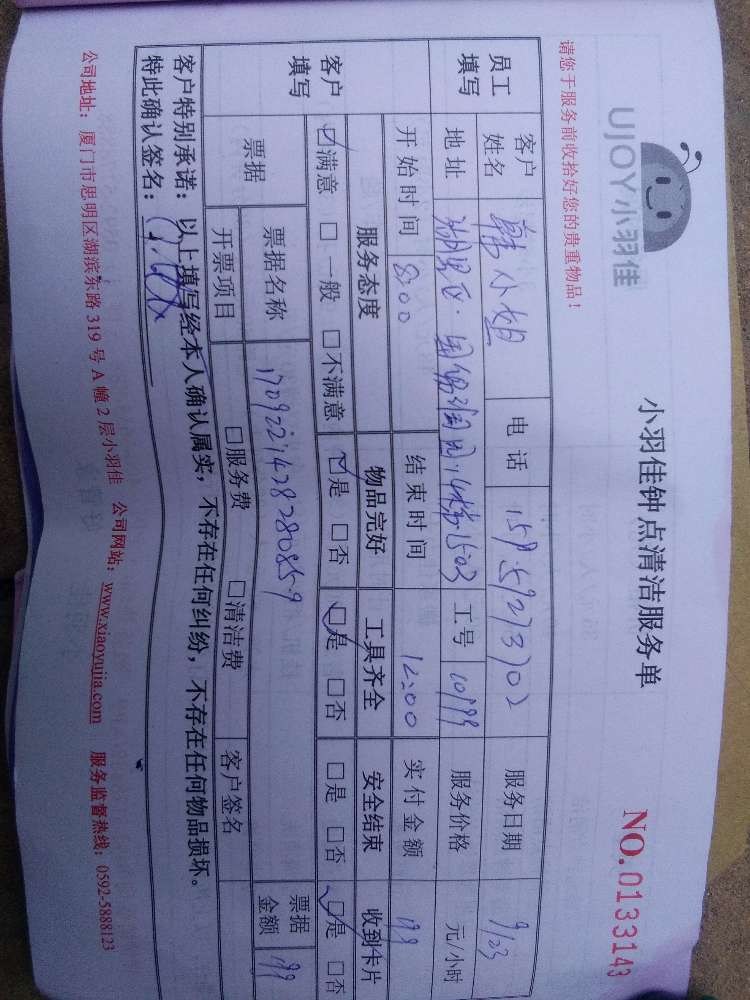 UJOY小羽佳
小羽佳钟点清洁服务单
NO.0133143
请您于服务前收拾好您的贵重物品！
员工填写 客户姓名 韩小姐 电话 服务日期 9/23
地址 工号 服务价格 元/小时
开始时间 8:00 结束时间 12:00 实付金额 199
客户填写 服务态度 物品完好 工具齐全 安全结束 收到卡片
☑满意 □一般 □不满意 ☑是 □否 ☑是 □否 □是 □否 ☑是 □否
票据 票据名称 票据金额 199
开票项目 □服务费 □清洁费 客户签名
客户特别承诺：以上填写经本人确认属实，不存在任何纠纷，不存在任何物品损坏。
特此确认签名：
公司地址：厦门市思明区湖滨东路 319 号 A 幢 2 层小羽佳 公司网站：www.xiaoyujia.com 服务监督热线：0592-5888123